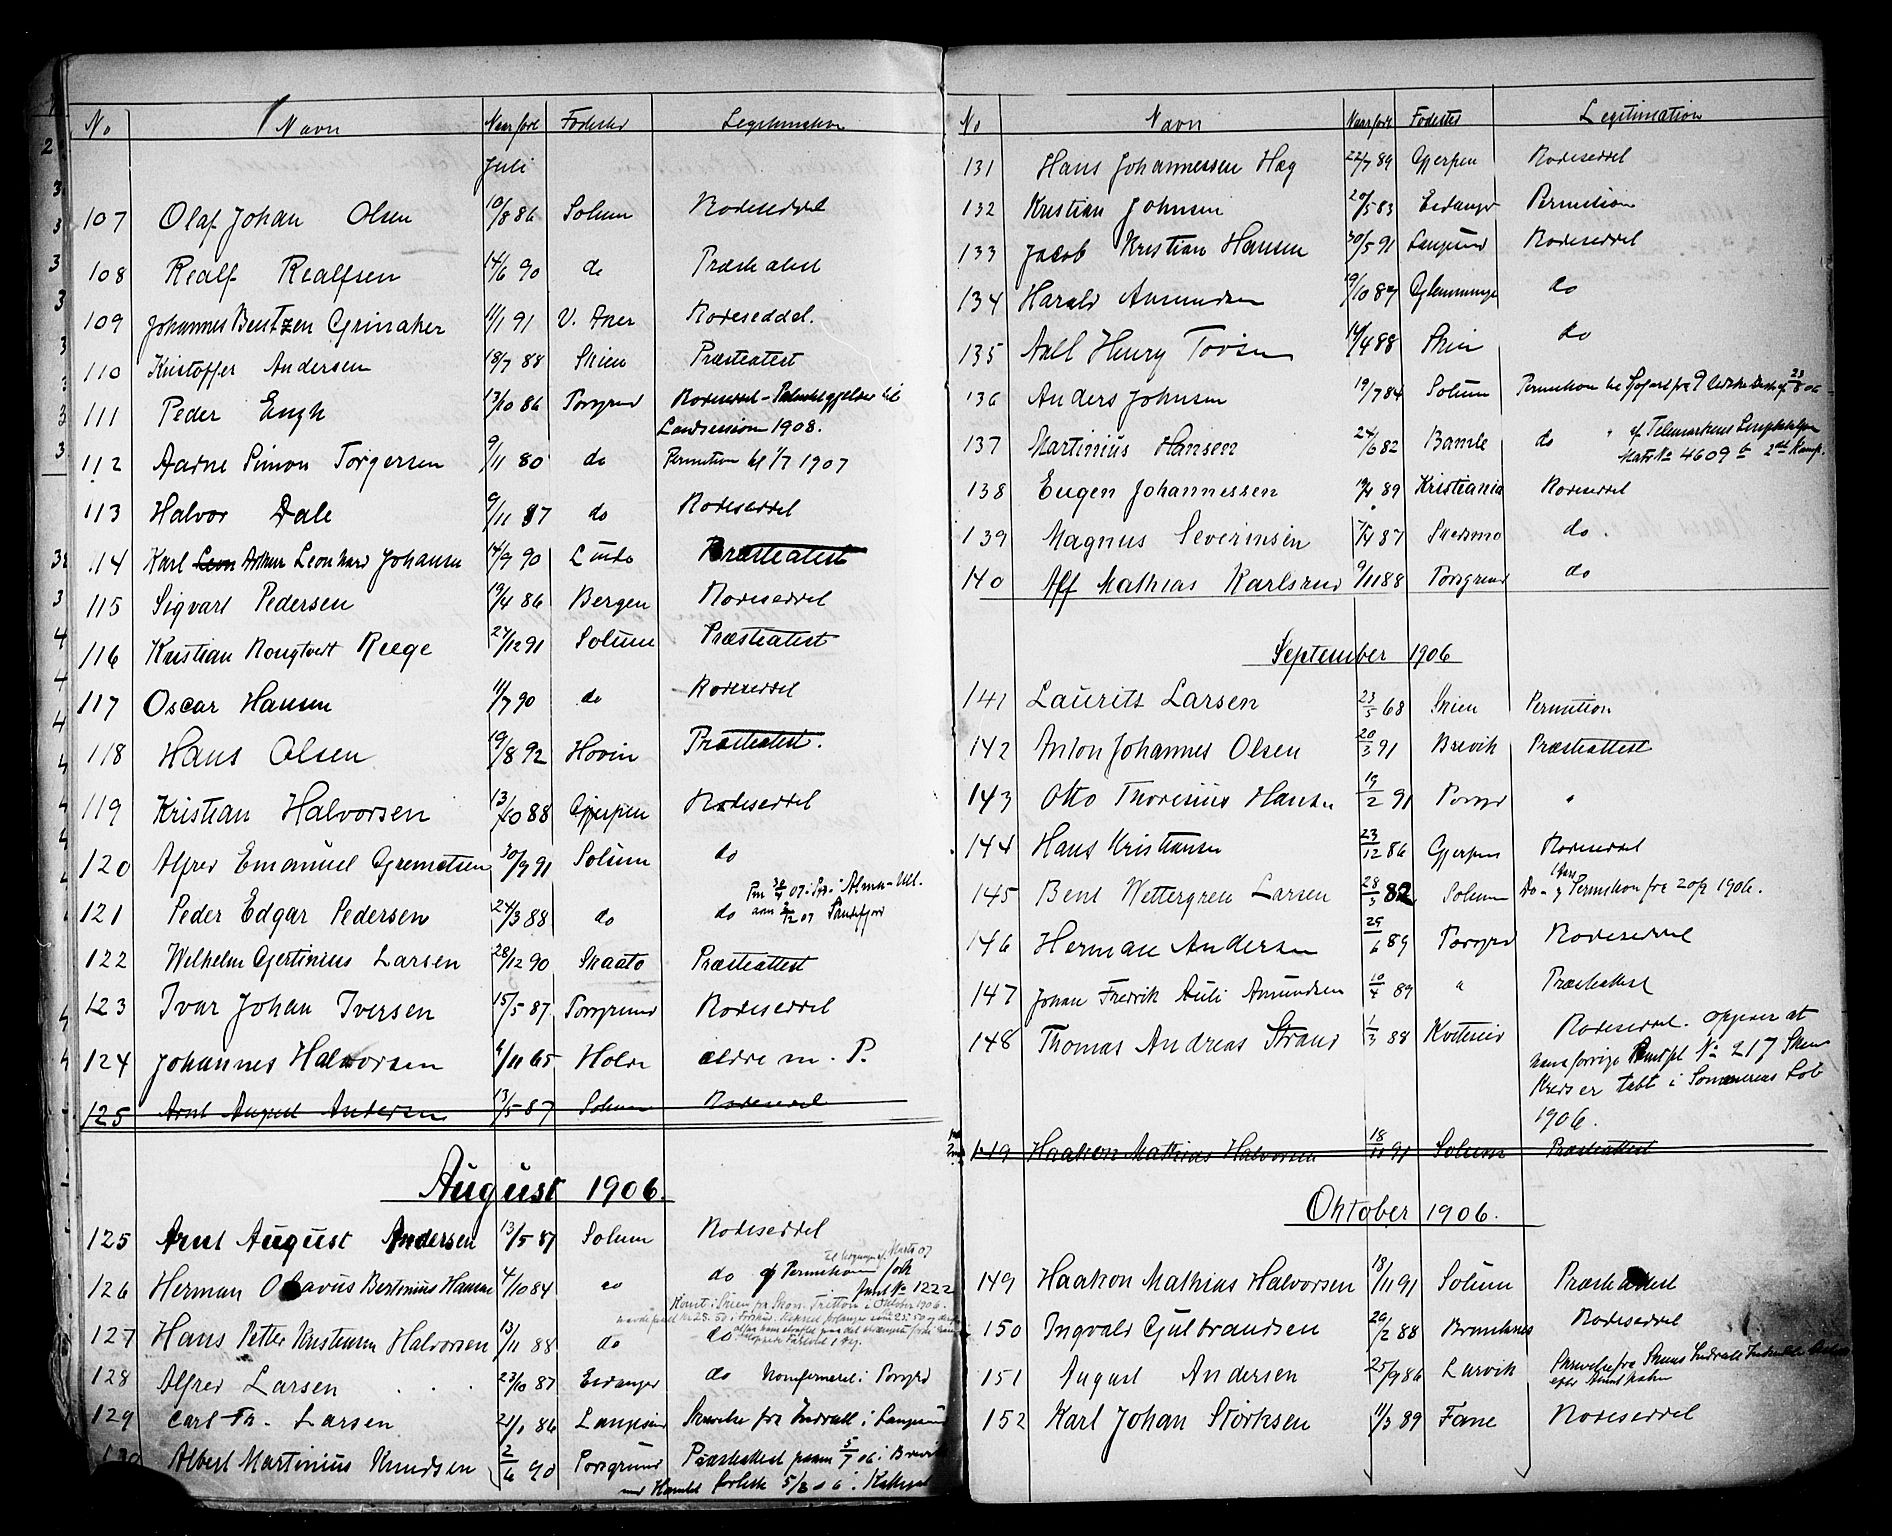 No Navn Naar født Fødested Legitimation
Juli
107 Olaf Johan Olsen 10/8 86 Solum Rodeseddel
108 Realf Realfsen 14/6 90 do Præsteatest
109 Johannes Bentzen Grinaker 11/1 91 V. Aker Rodeseddel.
110 Kristoffer Andersen 18/7 88 Skien Præsteatest
111 Peder Engh 13/10 86 Porsgrund Rodeseddel - til
Landsession 1908.
112 Aadne Simon Torgersen 9/11 80 do Permition til 1/7 1907
113 Halvor Dale 9/11 87 do Rodeseddel
114 Karl Leon Arthur Leonhard Johansen 14/9 90 Præsteatest
115 Sigvart Pedersen 19/4 86 Bergen Rodeseddel
116 Kristian Rougtvedt Reege 27/12 91 Solum Præsteatest
117 Oscar Hansen 11/7 90 do Rodeseddel
118 Hans Olsen 19/8 92 Hovin Præsteatest.
119 Kristian Halvorsen 13/10 88 Gjerpen Rodeseddel
120 Alfred Emanuel Gremetsen 30/9 91 Solum do
121 Peder Edgar Pedersen 24/3 88 do do
122 Wilhelm Gjertinius Larsen 28/12 90 Skaatø Præsteattest
123 Ivar Johan Iversen 15/5 87 Porsgrund Rodeseddel
124 Johannes Halvorsen 4/11 65 Holden ældre m. P.
125 Arnt August Andersen 13/5 87 Solum Rodeseddel
August 1906.
125 Arnt August Andersen 13/5 87 Solum Rodeseddel
126 Herman Olavus Bertinius Hansen 4/10 84 do do og Permition
No 1222
127 Hans Petter Kristiansen Halvorsen 13/11 88 do do
128 Alfred Larsen 23/10 87 Eidanger do Konfirmeret i Porsgrd
129 Carl Fr. Larsen 21/1 86 Langesund Skrivelse fra Indrull i Langesund
130 Albert Martinius Knudsen 2/6 90 Porsgrund Præsteattest paany 5/7 06 i Brevik
5/8 06 i
No Navn Naar født Fødested Legitimation
131 Hans Johannessen Hæg 22/7 89 Gjerpen Rodeseddel
132 Kristian Johnsen 20/5 83 Eidanger Permition
133 Jacob Kristian Hansen 30/5 91 Langesund Rodeseddel
134 Harald Amundsen 19/10 87 Glemminge do
135 Aall Henry Tovsen 14/4 88 Skien do
136 Anders Johnsen 19/7 84 Solum Permition til
137 Martinius Hansen 24/6 82 Bamle do " af Telemarkens
Matr No 4609 2det Komp.
138 Eugen Johannessen 89 Kristiania Rodeseddel
139 Magnus Severinsen 7/4 87 Skedsmo do.
140 Alf Mathias Karlsrud 9/11 88 Porsgrund do
September 1906
141 Laurits Larsen 23/5 68 Skien Permition
142 Anton Johannes Olsen 20/3 91 Brevik Præsteattest
143 Otto Thorenius Hansen 19/2 91 Porsgrd "
144 Hans Kristiansen 23/12 86 Gjerpen Rodeseddel
145 Bent Wettergren Larsen 28/3 82 Solum Do - og Permition fra 20/9 1906.
146 Herman Andersen 25/6 89 Porsgrd Rodeseddel
147 Johan Fredrik Auli Amundsen 10/4 89 " Præsteattest
148 Thomas Andreas Strand 1/3 88 Kviteseid Rodeseddel. Opgiver at
hans forrige No 217 Skiens
Kreds er tabt i Sommerens Løb
1906.
149 Haakon Mathias Halvorsen 18/11 91 Solum Præsteattest
Oktober 1906.
149 Haakon Mathias Halvorsen 18/11 91 Solum Præsteattest
150 Ingvald Gulbrandsen 29/2 88 Brunlanes Rodeseddel
151 August Andersen 25/9 86 Larvik Skrivelse fra Skiens
152 Karl Johan Størksen 11/3 89 Fane Rodeseddel